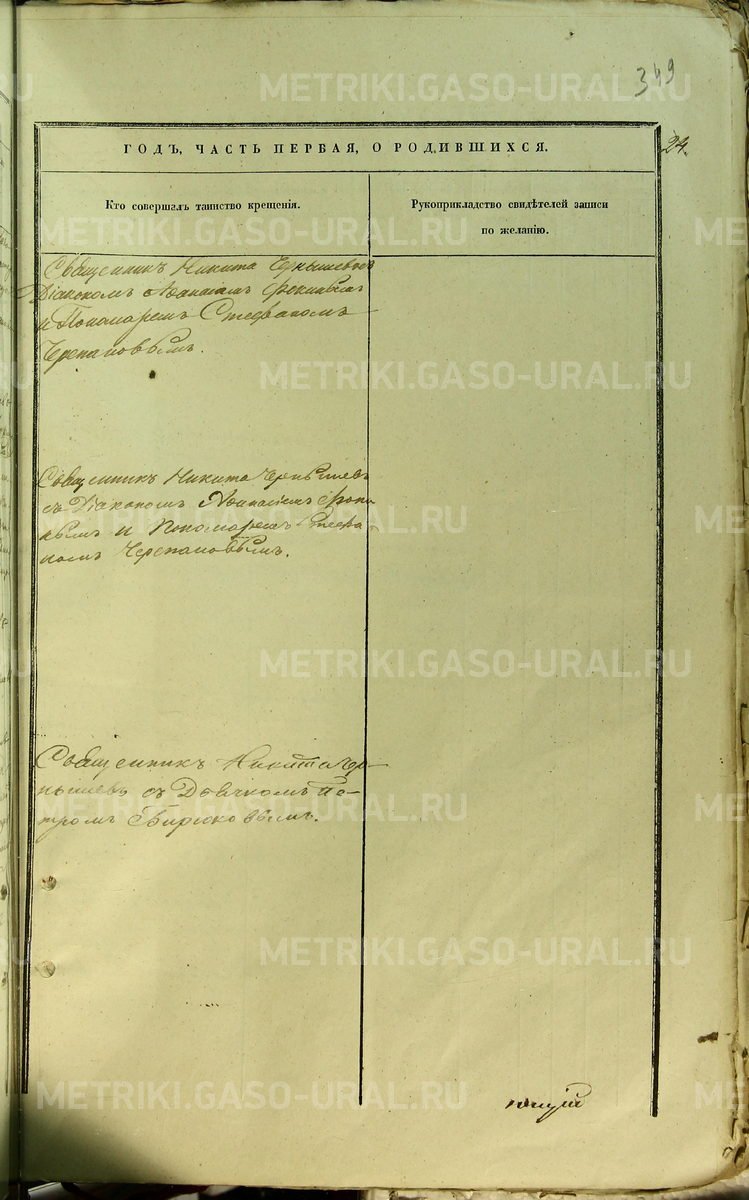 349
ГОДЪ, ЧАСТЬ ПЕРВАЯ, О РОДИВШИХСЯ.
24.
Кто совершалъ таинство крещенія.
Рукоприкладство свидѣтелей записи
по желанію.
Священникъ Никита Чернышевъ съ
Діакономъ Аѳанасіемъ
и Пономаремъ Стефаномъ
Черепановымъ.
Священникъ Никита Чернышевъ
съ Діакономъ Аѳанасіемъ
и Пономаремъ Стефа-
номъ Черепановымъ.
Священникъ Никита Чер-
нышевъ съ Дьячкомъ Пе-
тромъ Бирюковымъ.
METRIKI.GASO-URAL.RU